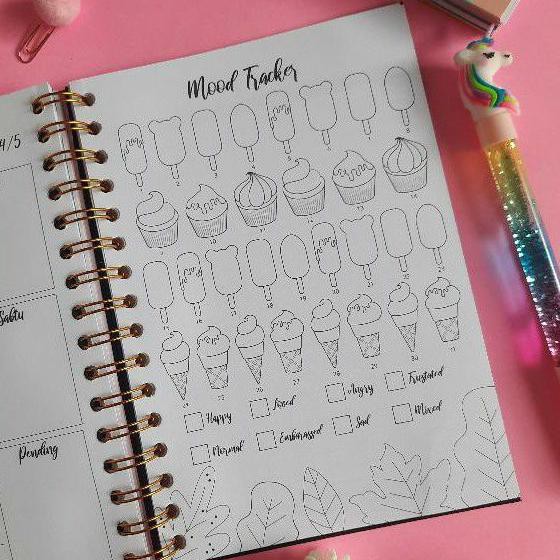 Mood Tracker
4/5
Sabtu
Pending
2
3
4
5
6
7
8
9
10
11
12
13
14
15
16
17
18
19
20
21
22
23
24
25
26
27
28
29
30
31
Happy
Loved
Angry
Frustated
Normal
Embarassed
Sad
Mixed